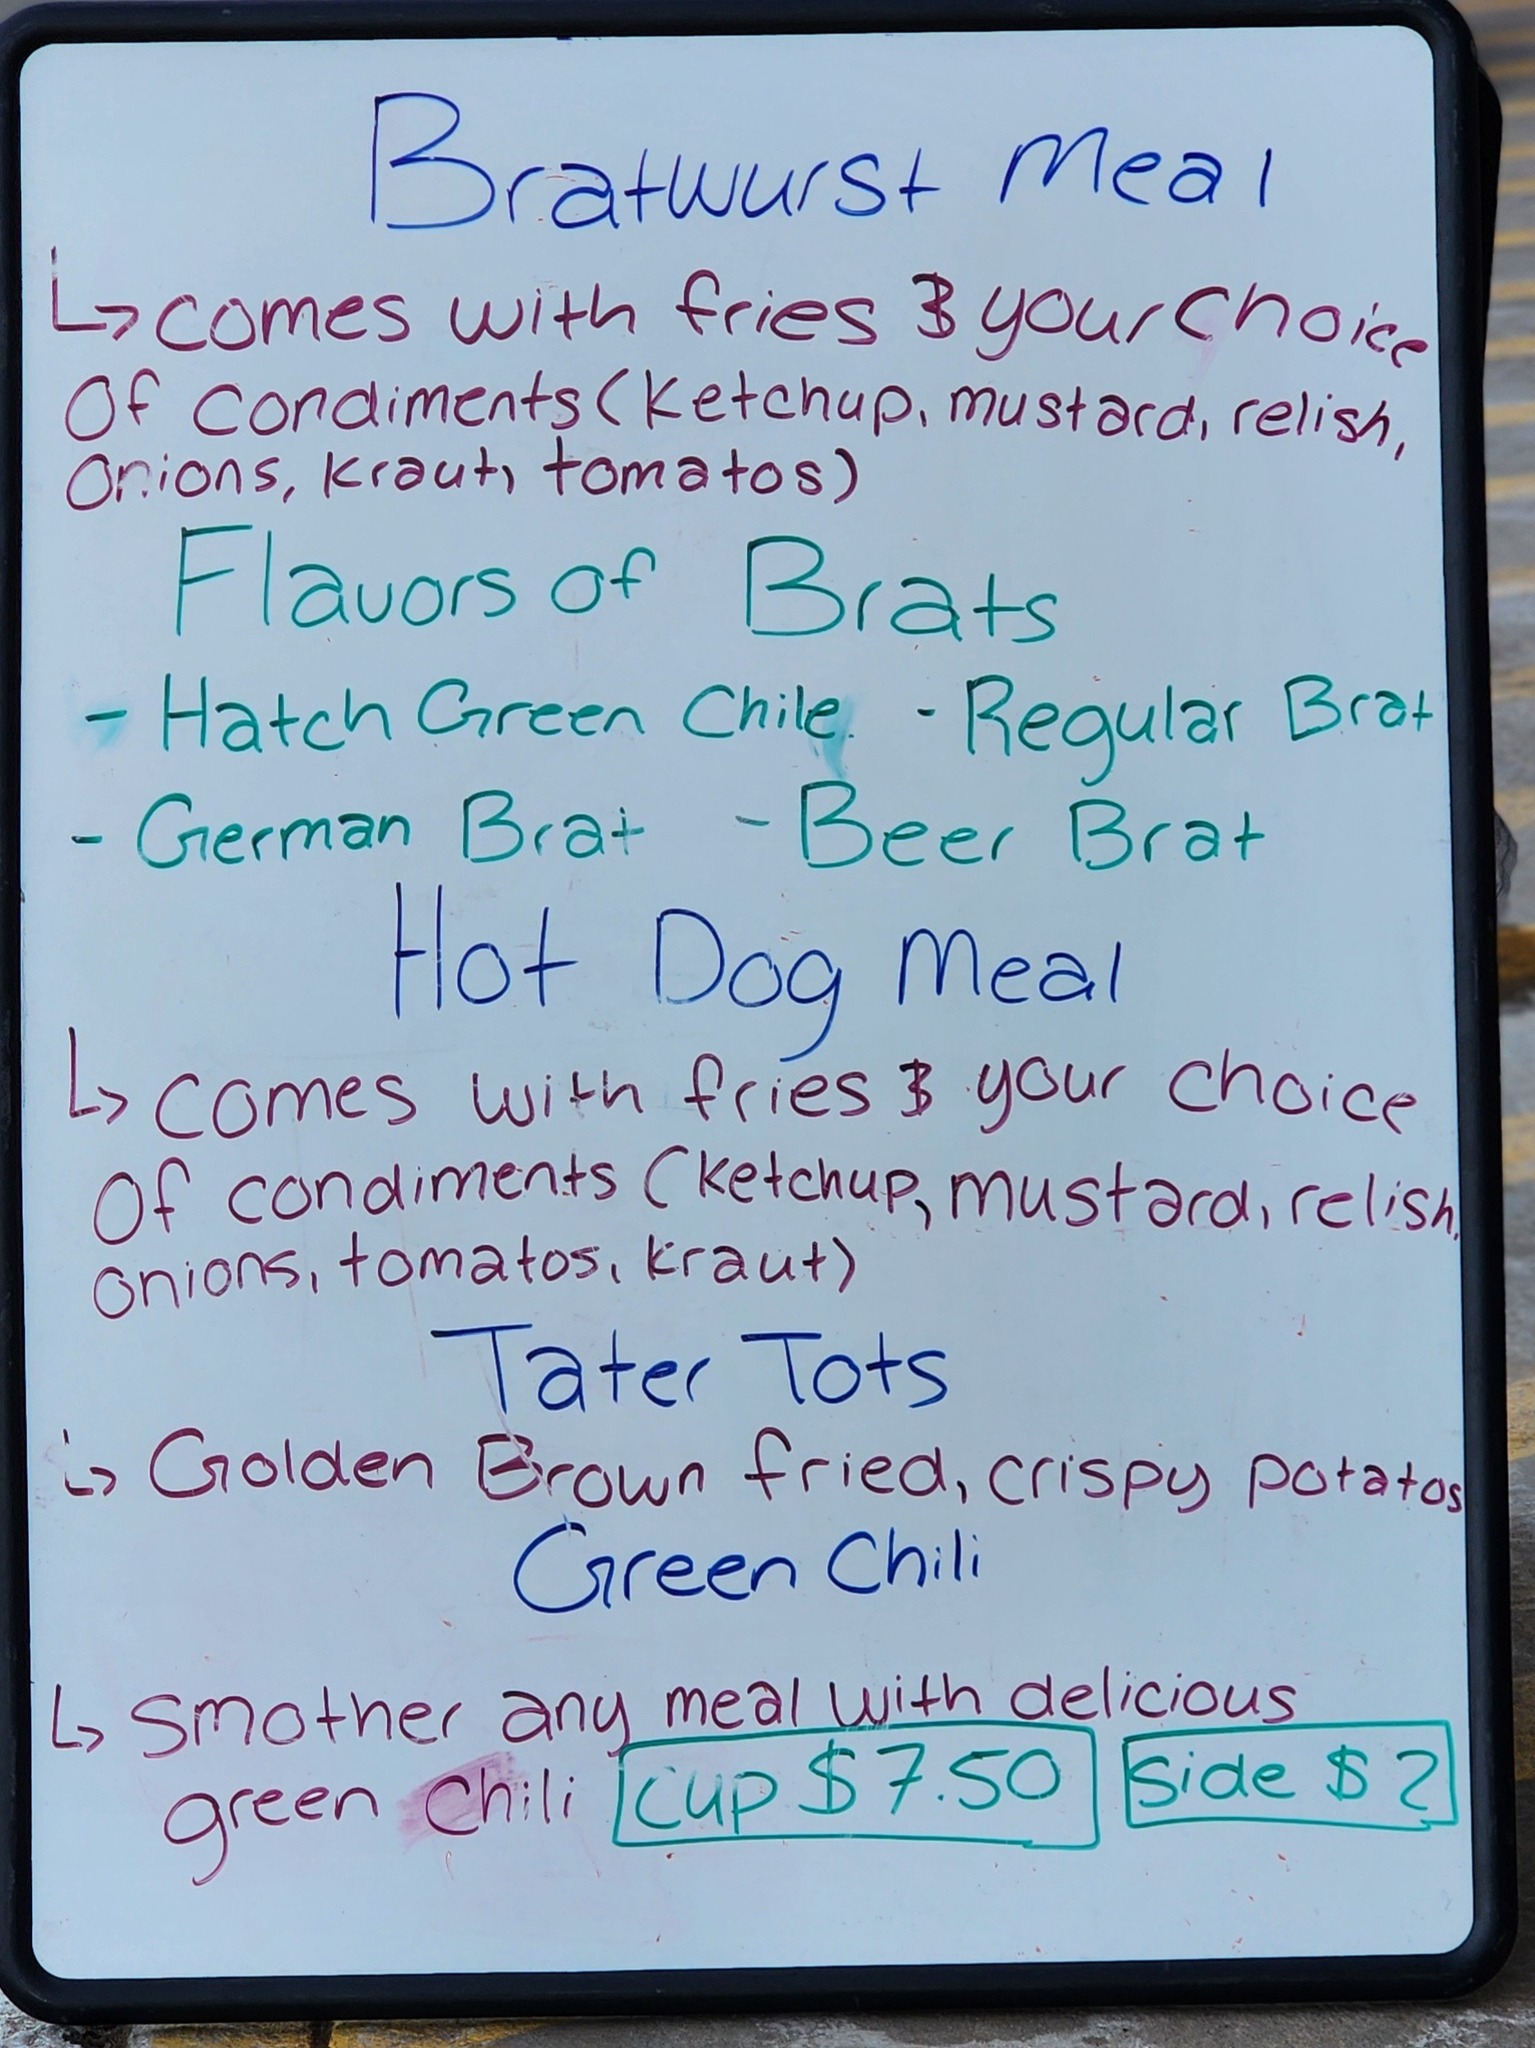 Bratwurst Meal
↳ comes with fries & your choice
Of condiments (Ketchup, mustard, relish,
Onions, kraut, tomatos)
Flavors of Brats
- Hatch Green Chile - Regular Brat
- German Brat - Beer Brat
Hot Dog Meal
↳ comes with fries & your choice
Of condiments (ketchup, mustard, relish,
onions, tomatos, kraut)
Tater Tots
↳ Golden Brown fried, crispy potatos
Green Chili
↳ Smother any meal with delicious
green chili cup $7.50 Side $2